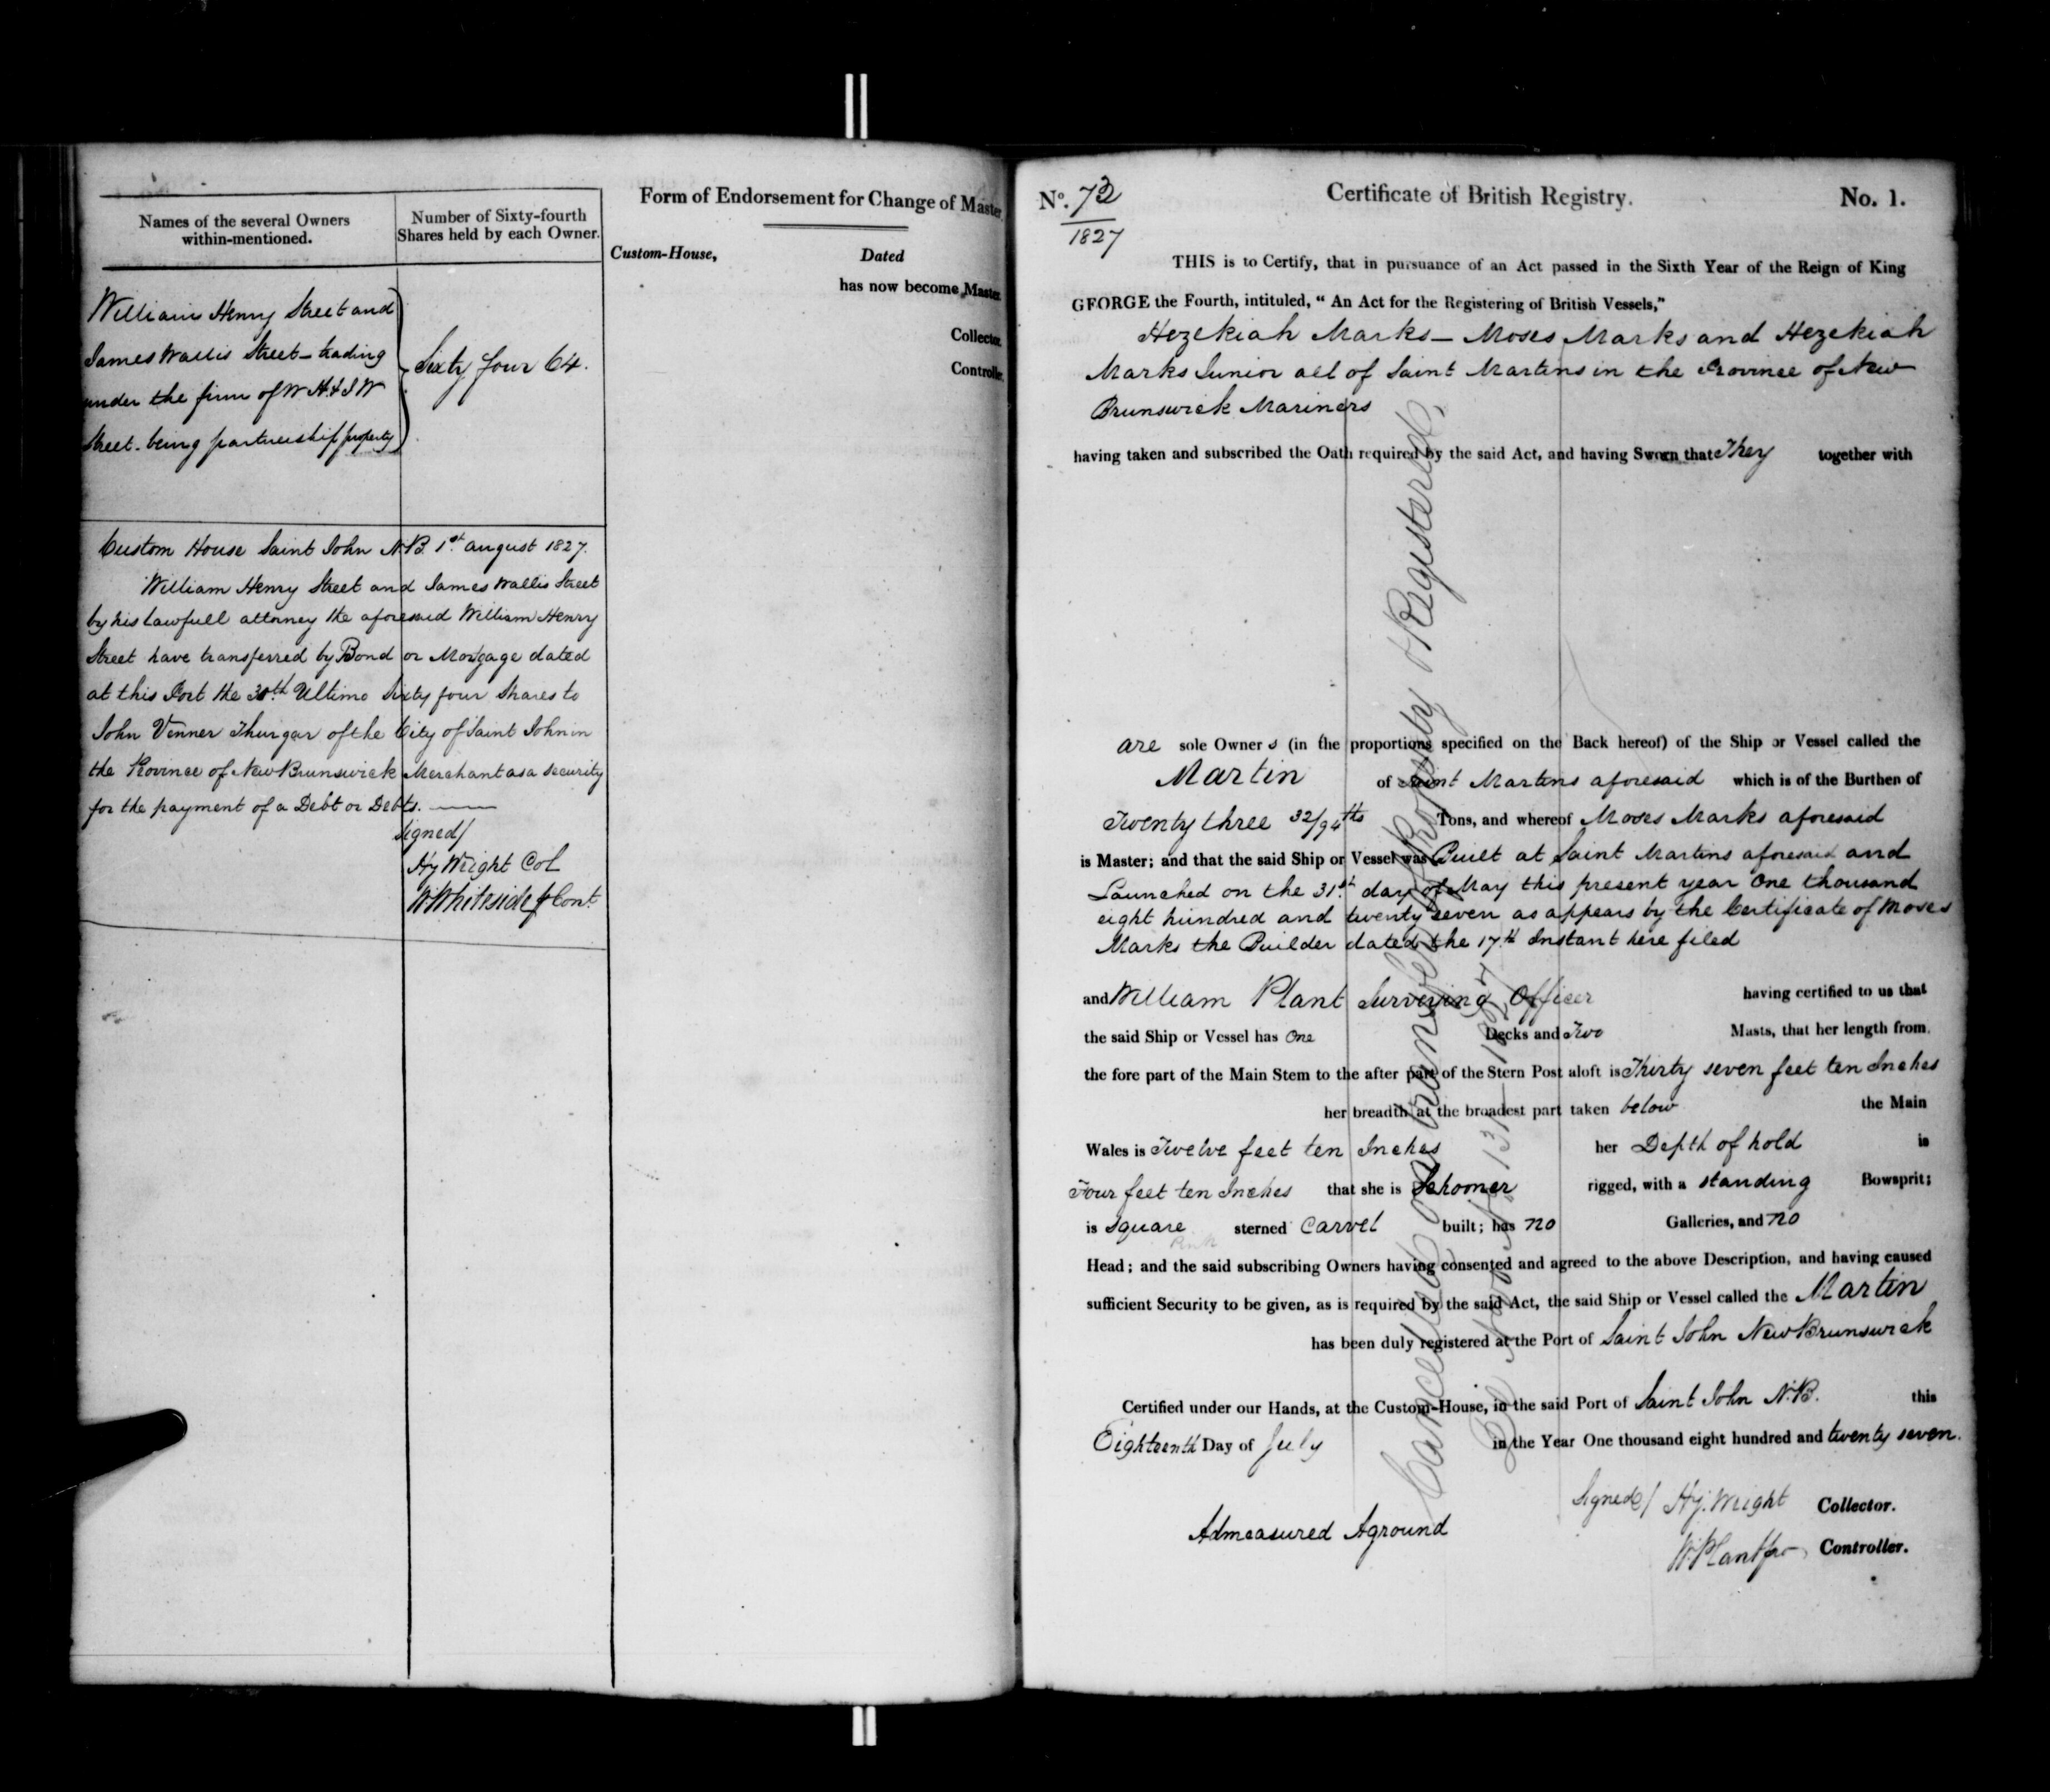 Names of the several Owners
within-mentioned.
Number of Sixty-fourth
Shares held by each Owner.
William Henry Street and
James Wallis Street - trading
under the firm of W H & J W
Street - being partnership property
Sixty four 64.
Custom House Saint John N.B. 1st August 1827.
William Henry Street and James Wallis Street
by his Lawfull attorney the aforesaid William Henry
Street have transferred by Bond or Mortgage dated
at this Port the 30th Ultimo Sixty four Shares to
John Venner Thurgar of the City of Saint John in
the Province of New Brunswick Merchant as a security
for the payment of a Debt or Debts.
Signed/
Hy Wright Col
W Whiteside Cont.
Form of Endorsement for Change of Master
Custom-House, Dated
has now become Master.
Collector.
Controller.
No. 72
1827
Certificate of British Registry.
No. 1.
THIS is to Certify, that in pursuance of an Act passed in the Sixth Year of the Reign of King
GEORGE the Fourth, intituled, “ An Act for the Registering of British Vessels,”
Hezekiah Marks - Moses Marks and Hezekiah
Marks Junior all of Saint Martins in the Province of New
Brunswick Mariners
having taken and subscribed the Oath required by the said Act, and having Sworn that They together with
are sole Owners (in the proportions specified on the Back hereof) of the Ship or Vessel called the
Martin of Saint Martins aforesaid which is of the Burthen of
Twenty three 32/94ths Tons, and whereof Moses Marks aforesaid
is Master; and that the said Ship or Vessel was Built at Saint Martins aforesaid and
Launched on the 31st day of May this present year One thousand
eight hundred and twenty seven as appears by the Certificate of Moses
Marks the Builder dated the 17th Instant here filed
and William Plant Surveying Officer having certified to us that
the said Ship or Vessel has One Decks and Two Masts, that her length from
the fore part of the Main Stem to the after part of the Stern Post aloft is Thirty seven feet ten Inches
her breadth at the broadest part taken below the Main
Wales is Twelve feet ten Inches her Depth of hold is
Four feet ten Inches that she is Schooner rigged, with a standing Bowsprit;
is Square sterned Carvel built; has no Galleries, and no
Pink
Head; and the said subscribing Owners having consented and agreed to the above Description, and having caused
sufficient Security to be given, as is required by the said Act, the said Ship or Vessel called the Martin
has been duly registered at the Port of Saint John New Brunswick
Certified under our Hands, at the Custom-House, in the said Port of Saint John N.B. this
Eighteenth Day of July in the Year One thousand eight hundred and twenty seven.
Signed/ Hy. Wright Collector.
W. Plant pro Controller.
Admeasured Aground
Cancelled on transfer of Property & Registered